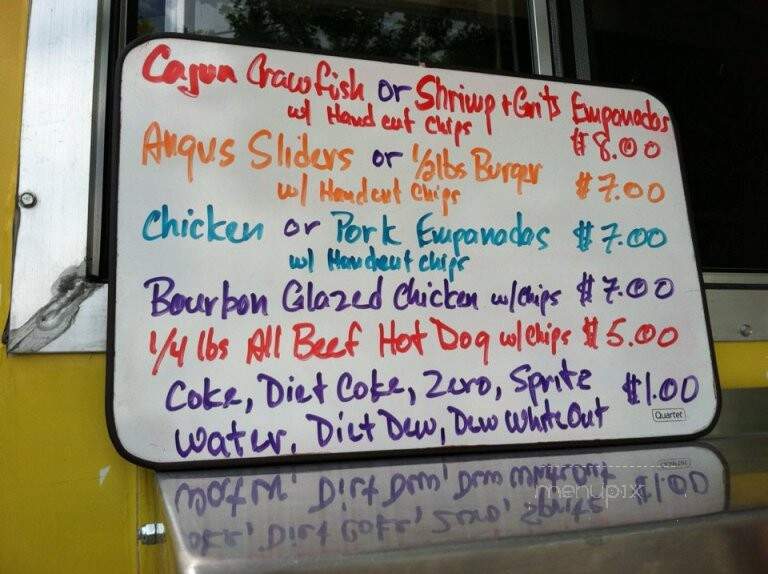 Cajun Crawfish or Shrimp + Grits Empanadas
w/ Hand cut chips $8.00
Angus Sliders or 1/2lbs Burger
w/ Handcut Chips $7.00
Chicken or Pork Empanadas $7.00
w/ Handcut chips
Bourbon Glazed Chicken w/chips $7.00
1/4 lbs All Beef Hot Dog w/chips $5.00
Coke, Diet Coke, Zero, Sprite $1.00
Water, Diet Dew, Dew White Out
Quartet
menupix